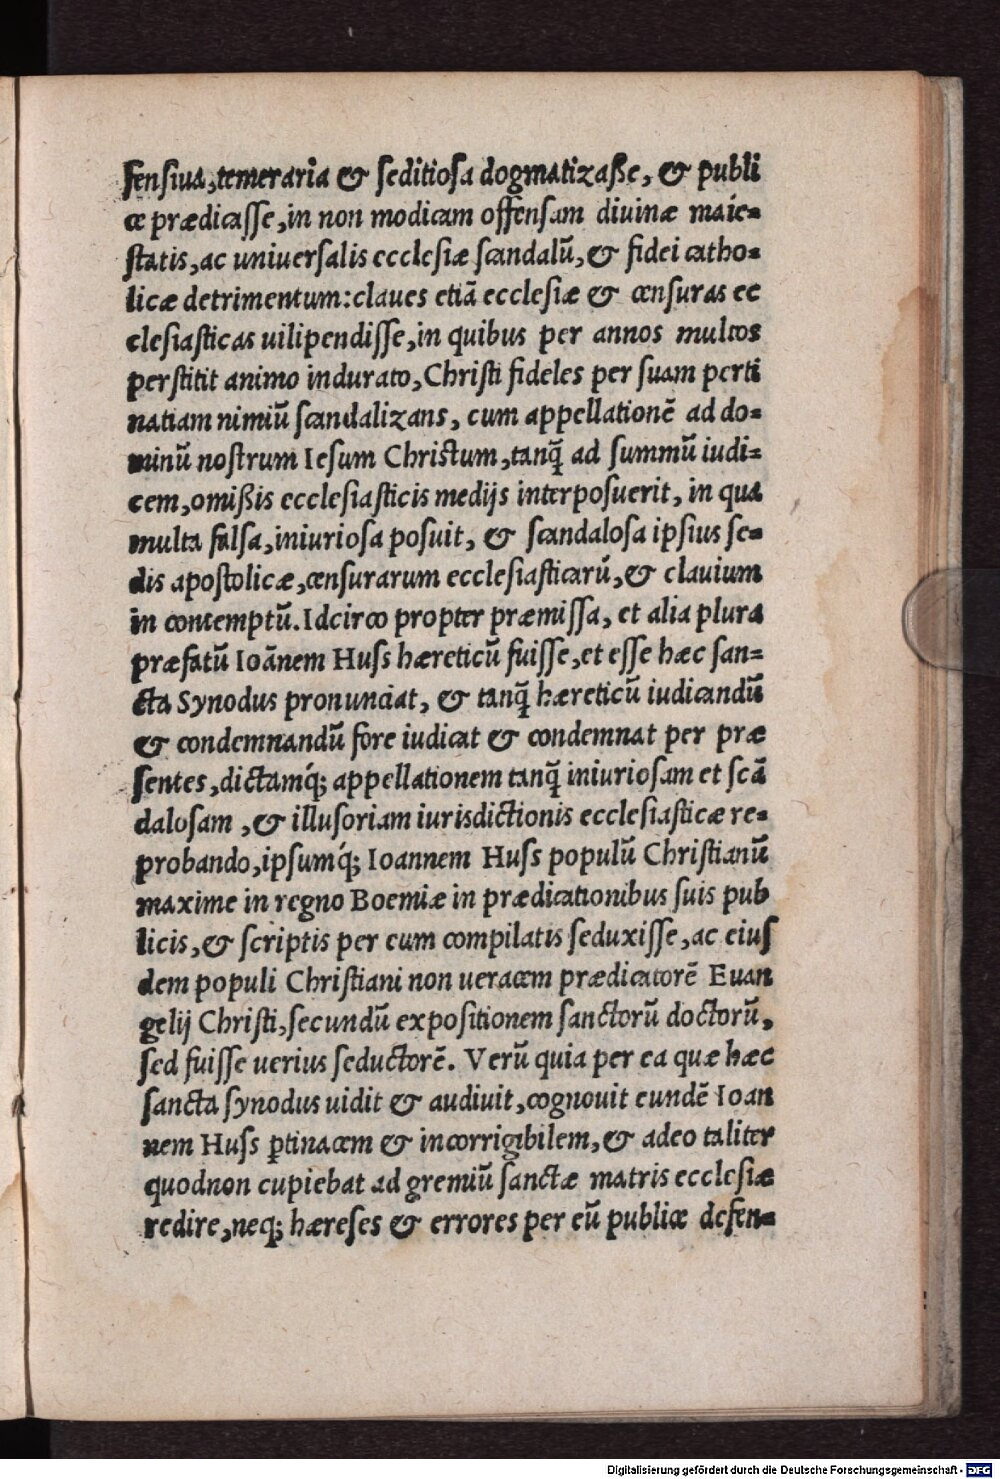 fensiua, temeraria & seditiosa dogmatizaße, & publi
ce prædicasse, in non modicam offensam diuinæ maie=
ſtatis, ac uniuerſalis eccleſiæ ſcandalū, & fidei catho=
licæ detrimentum: claues etiā eccleſiæ & cenſuras ec
cleſiaſticas uilipendiſſe, in quibus per annos multos
perſtitit animo indurato, Chriſti fideles per ſuam perti
natiam nimiū ſcandalizans, cum appellationē ad do=
minū noſtrum Ieſum Chriſtum, tanq̄ ad ſummū iudi=
cem, omißis eccleſiaſticis medijs interpoſuerit, in qua
multa falſa, iniurioſa poſuit, & ſcandaloſa ipſius ſe=
dis apoſtolicæ, cenſurarum eccleſiaſticarū, & clauium
in contemptū. Idcirco propter præmiſſa, et alia plura
præfatū Ioānem Huſs hæreticū fuiſſe, et eſſe hæc ſan=
cta Synodus pronunciat, & tanq̄ hæreticū iudicandū
& condemnandū fore iudicat & condemnat per præ
ſentes, dictamq́; appellationem tanq̄ iniurioſam et ſcā
daloſam, & illuſoriam iurisdictionis eccleſiaſticæ re=
probando, ipſumq́; Ioannem Huſs populū Chriſtianū
maxime in regno Boemiæ in prædicationibus ſuis pub
licis, & ſcriptis per eum compilatis ſeduxiſſe, ac eiuſ
dem populi Chriſtiani non ueracem prædicatorē Euan
gelij Chriſti, ſecundū expoſitionem ſanctorū doctorū,
ſed fuiſſe uerius ſeductorē. Verū quia per ea quæ hæc
ſancta ſynodus uidit & audiuit, cognouit eundē Ioan
nem Huſs ꝑtinacem & incorrigibilem, & adeo taliter
quodnon cupiebat ad gremiū ſanctæ matris eccleſiæ
redire, neq; hæreſes & errores per eū publice defen=
Digitalisierung gefördert durch die Deutsche Forschungsgemeinschaft - DFG